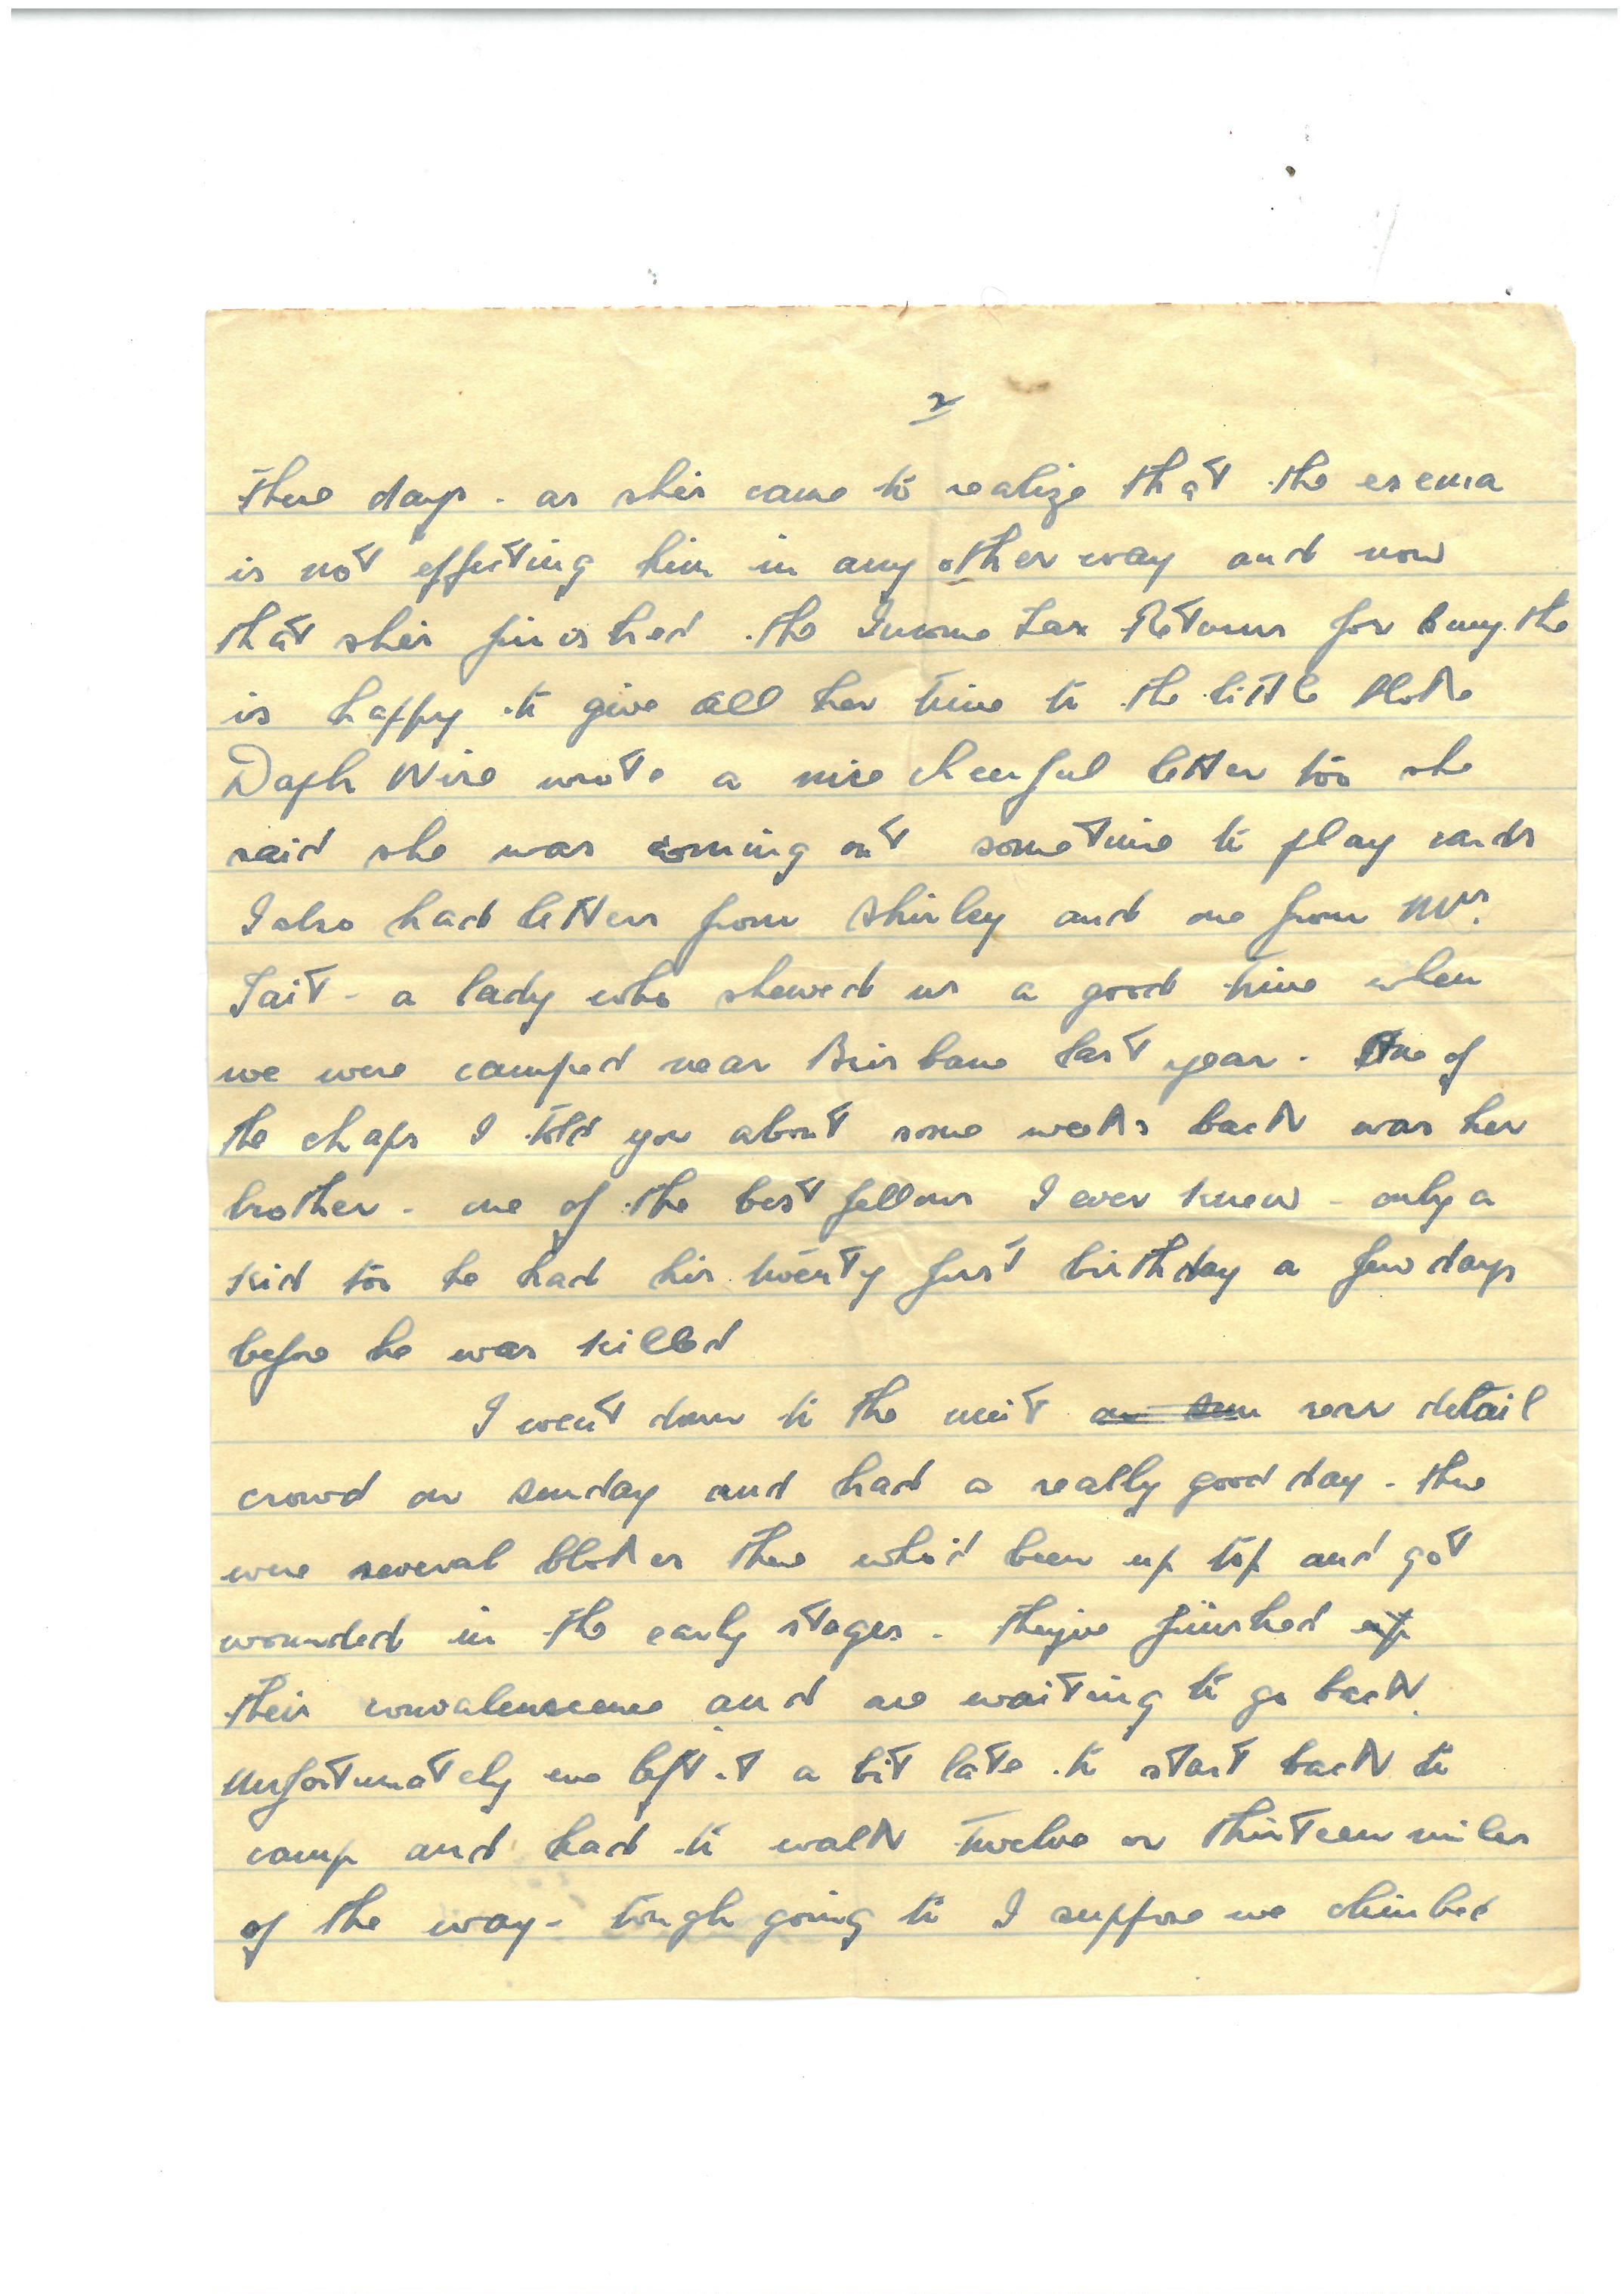 2
these days - as shes came to realize that the exema
is not effecting him in any other way and now
that shes finished the Income Tax Returns for
is happy to give all her time to the little bloke
Daph Wise wrote a nice cheerful letter too she
said she was coming out sometime to play cards
I also had letters from Shirley and one from Mrs.
Tait - a lady who shewed us a good time when
we were camped near Brisbane last year. One of
the chaps I told you about some weeks back was her
brother - one of the best fellows I ever knew - only a
kid too he had his twenty first birthday a few days
before he was killed
I went down to the unit on Sun rear detail
crowd on Sunday and had a really good day - there
were several blokes there who'd been up top and got
wounded in the early stages - theyve finished up
their convalescence and are waiting to go back.
Unfortunately we left it a bit late to start back to
camp and had to walk twelve or thirteen miles
of the way - tough going to I suppose we climbed